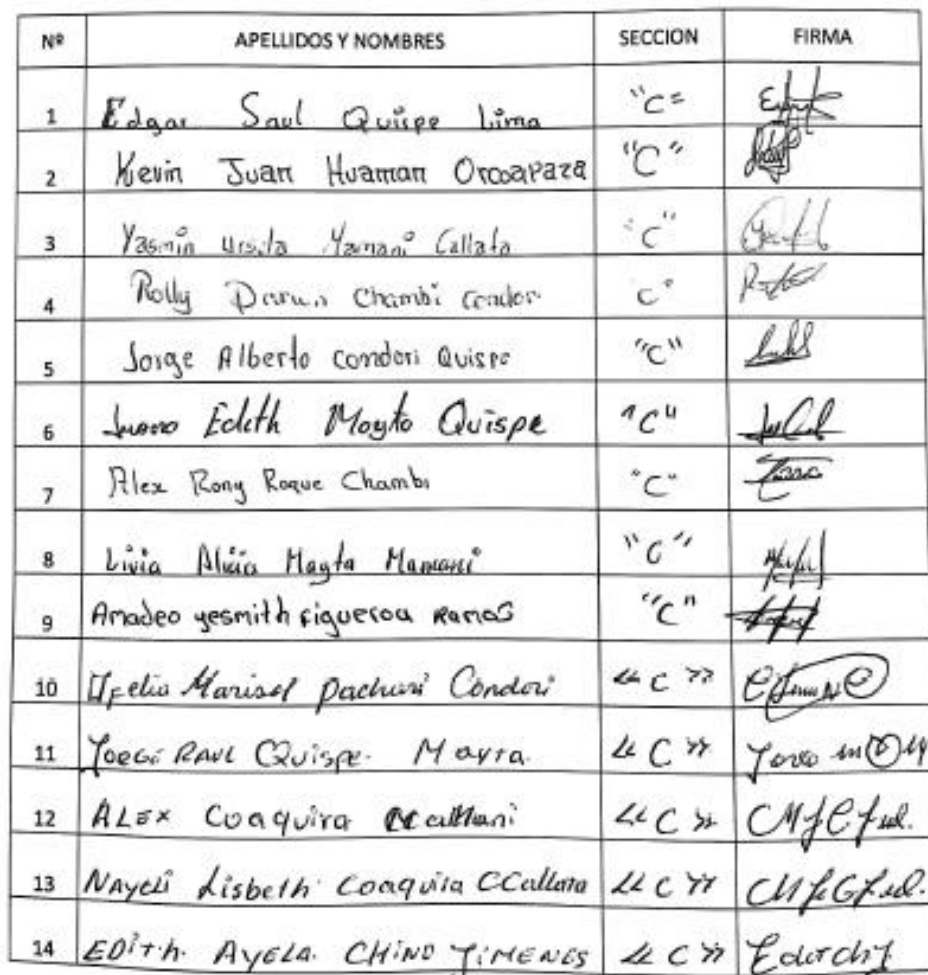 Nº APELLIDOS Y NOMBRES SECCION FIRMA
1 Edgar Saul Quispe Lima "C"
2 Kevin Juan Huaman Orcoapaza "C"
3 Yasmin Ursula Mamani Callata "C"
4 Rolly Darwin Chambi Condor "C"
5 Jorge Alberto Condori Quispe "C"
6 Edith Mayta Quispe "C"
7 Alex Rony Roque Chambi "C"
8 Livia Alicia Mayta Mamani "C"
9 Amadeo yesmith Figueroa Ramos "C"
10 Ofelia Marisol pachari Condori «C»
11 RAUL CQuispe. Mayta. «C»
12 ALEX Coaquira «C»
13 Nayeli Lisbeth Coaquira CCallata «C»
14 EDITH. AYELA. CHINO JIMENES «C»